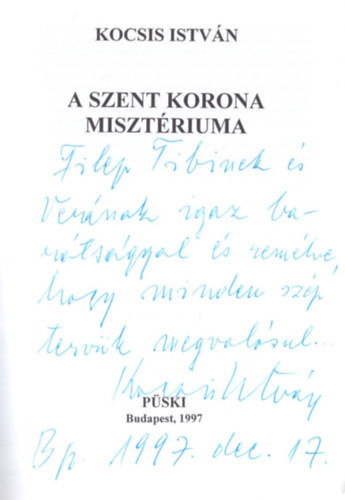 KOCSIS ISTVÁN
A SZENT KORONA
MISZTÉRIUMA
Filep Tibinek és
Verának igaz ba-
rátsággal és remélve,
hogy minden szép
tervük megvalósul...
Kocsis István
PÜSKI
Budapest, 1997
Bp. 1997. dec. 17.